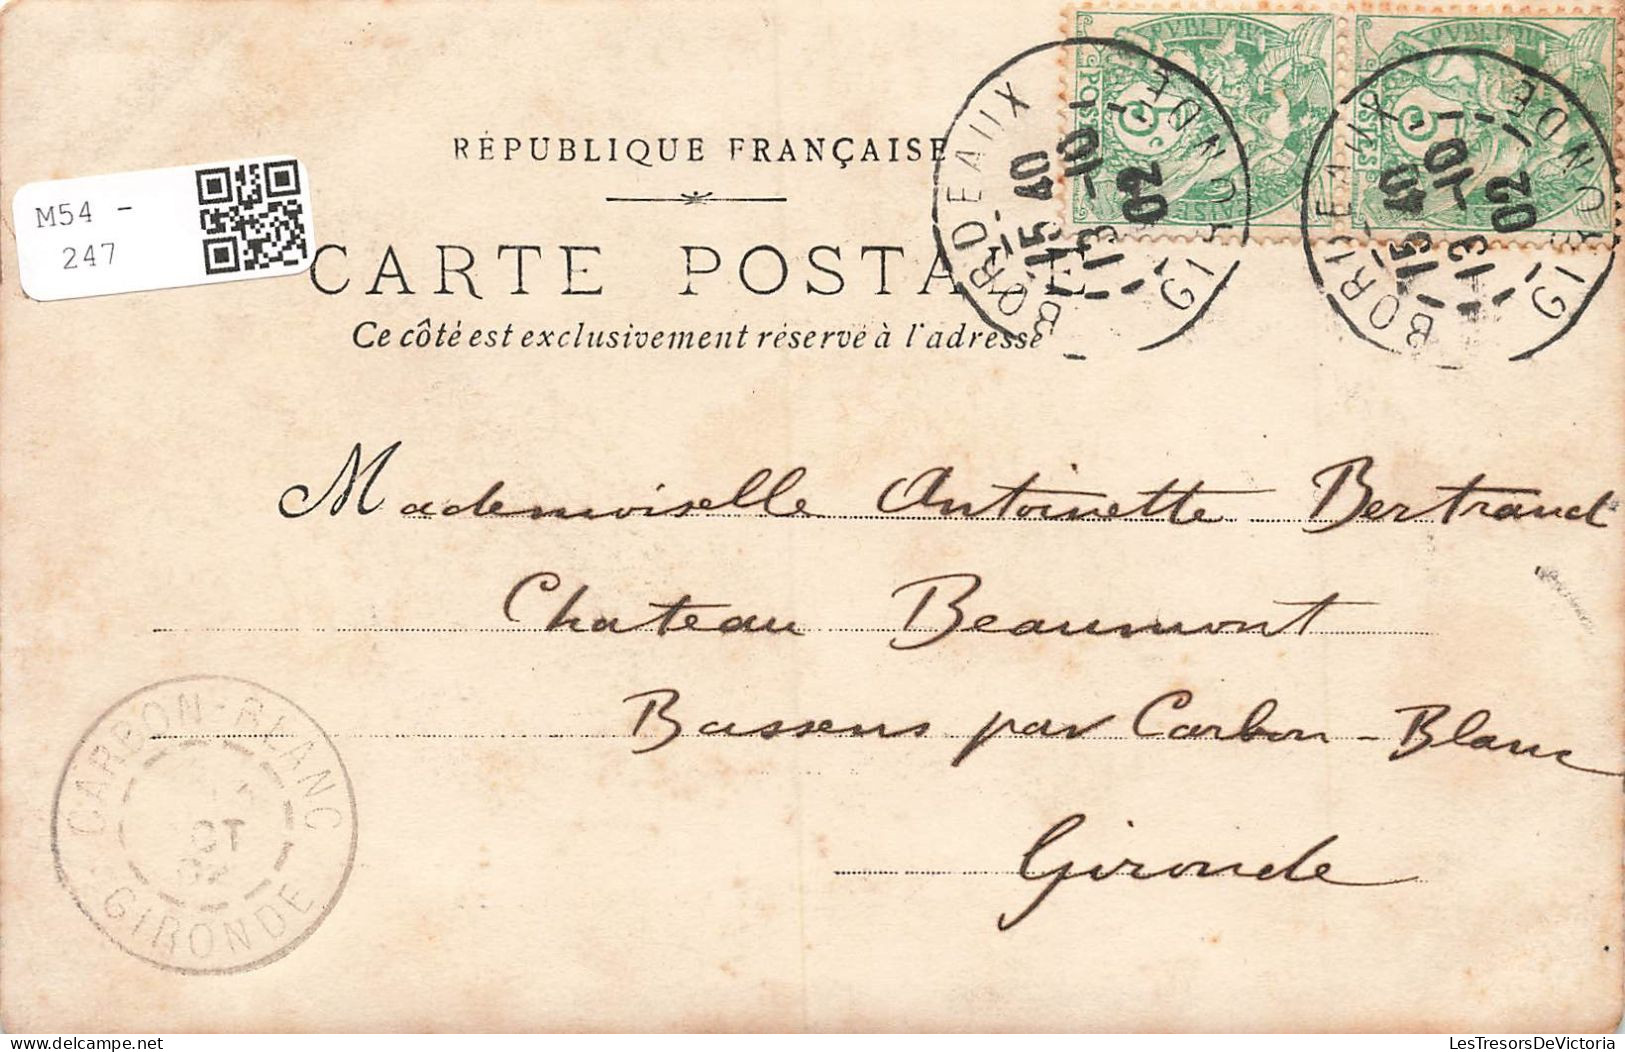 RÉPUBLIQUE FRANÇAISE
CARTE POSTALE
Ce côté est exclusivement réservé à l'adresse
M54 -
247
BORDEAUX GIRONDE
15 40
13 -10
02
BORDEAUX GIRONDE
15 40
13 -10
02
RÉPUBLIQUE FRANÇAISE
POSTES
5 c
RÉPUBLIQUE FRANÇAISE
POSTES
5 c
Mademoiselle Antoinette Bertrand
Chateau Beaumont
Bassens par Carbon-Blanc
Gironde
CARBON-BLANC
OCT
02
GIRONDE
LesTresorsDeVictoria.com
LesTresorsDeVictoria